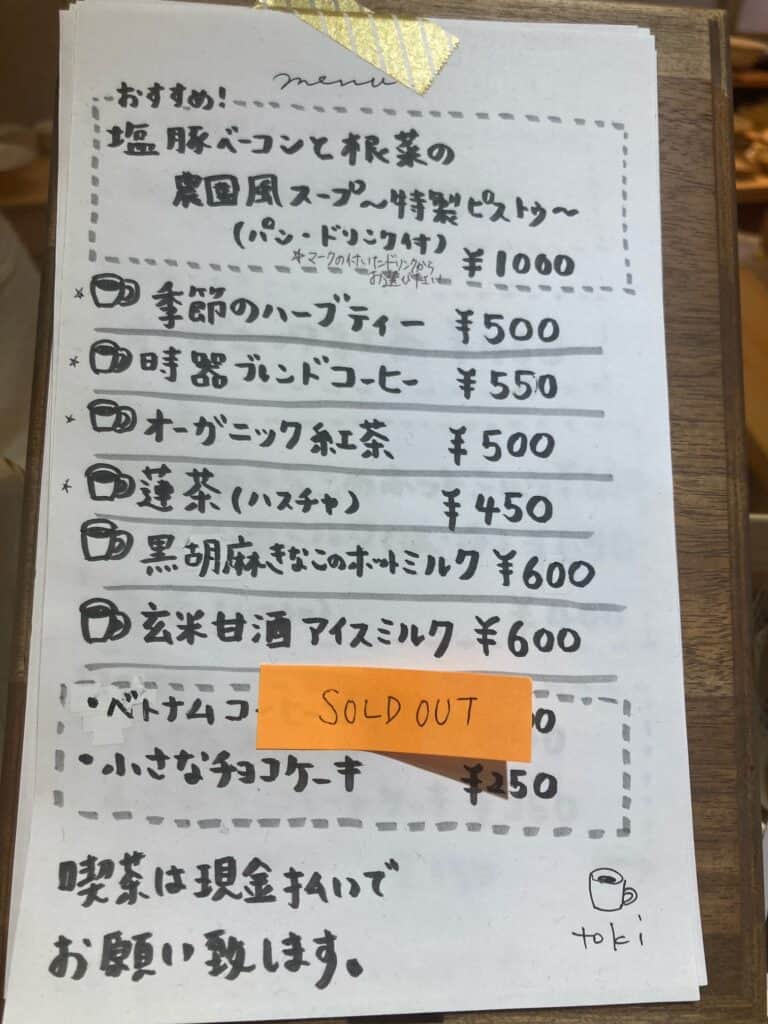 menu
おすすめ!
塩豚ベーコンと根菜の
農園風スープ〜特製ピストゥ〜
(パン・ドリンク付)
*マークの付いたドリンクから
お選び下さい
¥1000
* 季節のハーブティー ¥500
* 時器ブレンドコーヒー ¥550
* オーガニック紅茶 ¥500
* 蓮茶(ハスチャ) ¥450
黒胡麻きなこのホットミルク ¥600
玄米甘酒アイスミルク ¥600
・ベトナムコ
SOLD OUT
・小さなチョコケーキ ¥250
喫茶は現金払いで
お願い致します。
toki